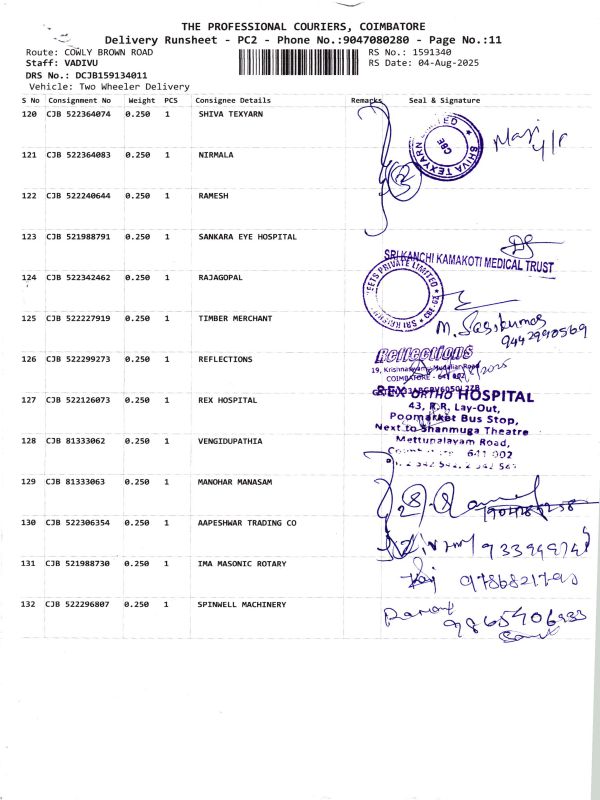 THE PROFESSIONAL COURIERS, COIMBATORE
Delivery Runsheet - PC2 - Phone No.:9047080280 - Page No.:11
Route: COWLY BROWN ROAD RS No.: 1591340
Staff: VADIVU RS Date: 04-Aug-2025
DRS No.: DCJB159134011
Vehicle: Two Wheeler Delivery
S No Consignment No Weight PCS Consignee Details Remarks Seal & Signature
120 CJB 522364074 0.250 1 SHIVA TEXYARN
SHIVA TEXYARN LIMITED
CBE
121 CJB 522364083 0.250 1 NIRMALA
122 CJB 522240644 0.250 1 RAMESH
123 CJB 521988791 0.250 1 SANKARA EYE HOSPITAL
SRI KANCHI KAMAKOTI MEDICAL TRUST
124 CJB 522342462 0.250 1 RAJAGOPAL
PRIVATE LIMITED
125 CJB 522227919 0.250 1 TIMBER MERCHANT
M. Sasikumar
9442990569
126 CJB 522299273 0.250 1 REFLECTIONS
Reflections
19, Krishnaswamy Mudaliar Road
COIMBATORE - 641 002
127 CJB 522126073 0.250 1 REX HOSPITAL
REX ORTHO HOSPITAL
43, R.R. Lay-Out,
Poomarket Bus Stop,
Next to Shanmuga Theatre
Mettupalayam Road,
641 002
128 CJB 81333062 0.250 1 VENGIDUPATHIA
129 CJB 81333063 0.250 1 MANOHAR MANASAM
130 CJB 522306354 0.250 1 AAPESHWAR TRADING CO
131 CJB 521988730 0.250 1 IMA MASONIC ROTARY
132 CJB 522296807 0.250 1 SPINWELL MACHINERY
9865406933